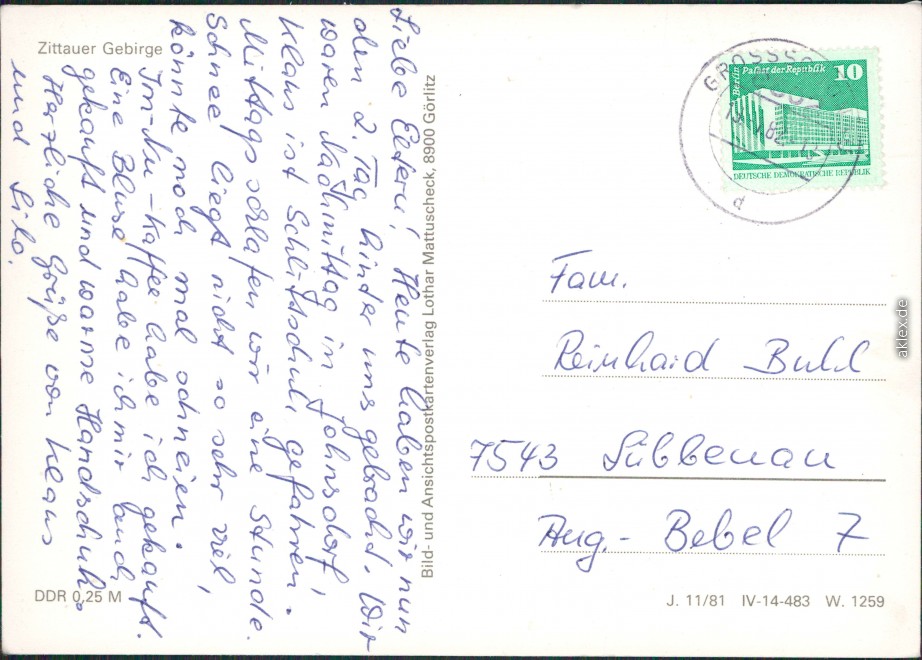 Zittauer Gebirge
Liebe Eltern! Heute haben wir nun
den 2. Tag hinter uns gebracht. Wir
waren Nachmittag in Johnsdorf!
Klaus ist Schlittschuh gefahren.
Mittags schlafen wir eine Stunde.
Schnee liegt nicht so sehr viel,
könnte noch mal schneien.
Im-Nu-Kaffee habe ich gekauft.
Eine Bluse habe ich mir auch
gekauft und warme Handschuh.
Herzliche Grüße von Klaus
und Lilo.
Bild- und Ansichtspostkartenverlag Lothar Mattuscheck, 8900 Görlitz
DDR 0,25 M
GROSSSC
82
Berlin Palast der Republik 10
DEUTSCHE DEMOKRATISCHE REPUBLIK
Fam.
Reinhard Buhl
7543 Lübbenau
Aug.- Bebel 7
J. 11/81 IV-14-483 W. 1259
aklex.de